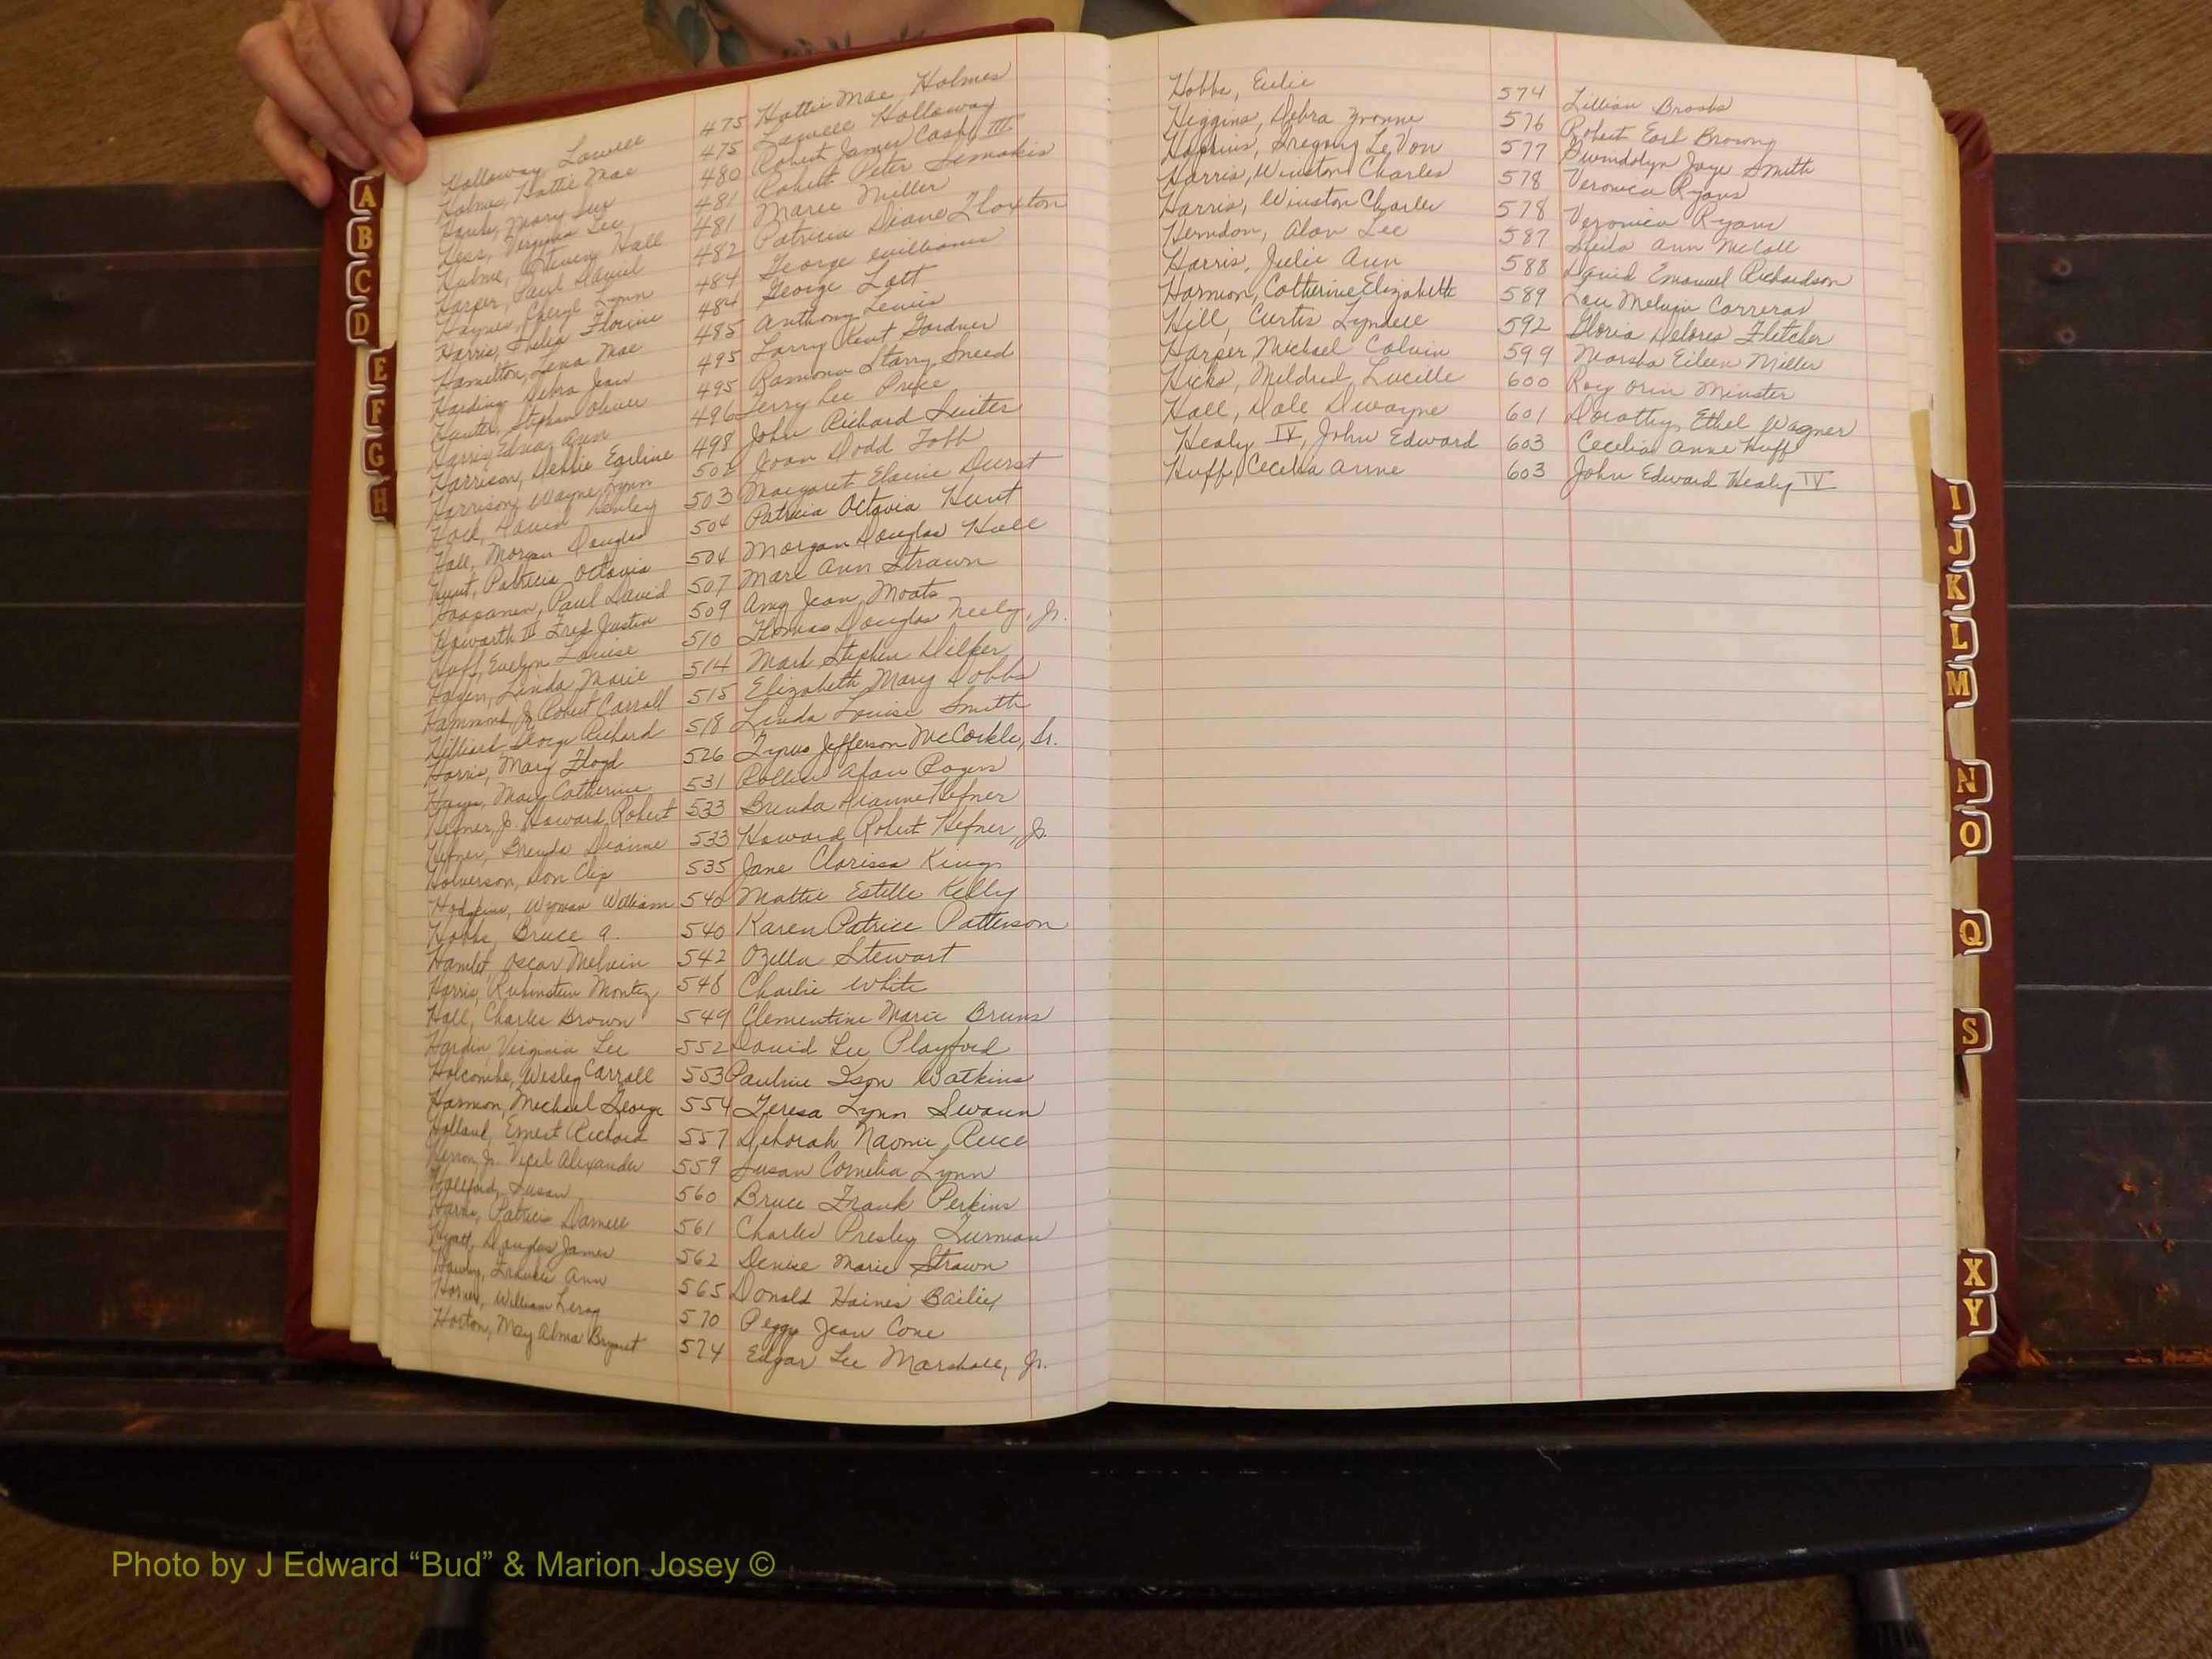 Holloway, Lowell 475 Hattie Mae Holmes
Holmes, Hattie Mae 475 Lowell Holloway
Mary Sux 480 Robert James Cash, III
Hess, Virginia Lee 481 Robert Peter Simakis
Hulme, Steven Hall 481 Marie Miller
Harper, Paul David 482 Patricia Diane Thaxton
Haynes, Cheryl Lynn 484 George Williams
Harris, Thelia Florine 484 George Lott
Hamilton, Lena Mae 485 Anthony Lewis
Harding, Debra Jean 495 Larry Kent Gardner
Hunter, Stephan Oliver 495 Ramona Starry Sneed
Harris, Edna Ann 496 Jerry Lee Price
Harrison, Debbie Earline 498 John Richard Suiter
Harrison, Wayne Lynn 502 Joan Dodd Fobb
David 503 Margaret Elaine Durst
Hall, Morgan Douglas 504 Patricia Octavia Hunt
Hunt, Patricia Octavia 504 Morgan Douglas Hall
Haapanen, Paul David 507 Mari Ann Strawn
Howarth III Fred Justin 509 Amy Jean Moats
Huff, Evelyn Louise 510 Thomas Douglas Neely, Jr.
Hagen, Linda Marie 514 Mark Stephen Dilfer
Hammond, Jr Robert Carroll 515 Elizabeth Mary Dobbs
Hilliard, George Richard 518 Linda Louise Smith
Harris, Mary Floyd 526 Tyrus Jefferson McCorkle, Sr.
Hayes, Mary Catherine 531 Rollin Alan Rogers
Hefner, Jr. Howard Robert 533 Brenda Dianne Hefner
Hefner, Brenda Dianne 533 Howard Robert Hefner, Jr.
Halverson, Don Clip 535 Jane Clarissa King
Hodgkins, Wyman William 540 Mattie Estelle Kelly
Hobbs, Bruce A. 540 Karen Patrice Patterson
Hamlet, Oscar Melvin 542 Ozella Stewart
Harris, Rubinstein Montez 548 Charlie White
Hall, Charles Brown 549 Clementine Marie Bruns
Hardin Virginia Lee 552 David Lee Playford
Holcombe, Wesley Carroll 553 Pauline Ison Watkins
Harmon, Michael George 554 Teresa Lynn Swann
Holland, Ernest Richard 557 Deborah Naomi Reece
Herron, Jr. Vicil Alexander 559 Susan Cornelia Lynn
Holliford, Susan 560 Bruce Frank Perkins
Patricia Darnell 561 Charles Presley Turman
Hyatt, Douglas James 562 Denise Marie Strawn
Ann 565 Donald Haines Bailie
William Leroy 570 Peggy Jean Cone
Horton, May Alma Bryant 574 Edgar Lee Marshall, Jr.
Hobbs, Eulie 574 Lillian Brooks
Higgins, Debra Yvonne 576 Robert Earl Browning
Hopkins, Gregory Le Von 577 Gwendolyn Joye Smith
Harris, Winston Charles 578 Veronica Ryans
Harris, Winston Charles 578 Veronica Ryans
Herndon, Alan Lee 587 Sheila Ann McCall
Harris, Julie Ann 588 David Emanuel Richardson
Harmon, Catherine Elizabeth 589 Lou Melvin Carreras
Hill, Curtis Lyndell 592 Gloria Delores Fletcher
Harper, Michael Calvin 599 Marsha Eileen Miller
Hicks, Mildred Lucille 600 Roy Orin Minster
Hall, Dale Dwayne 601 Dorothy Ethel Wagner
Healy IV, John Edward 603 Cecelia Anne Huff
Huff, Cecelia Anne 603 John Edward Healy IV
A
B
C
D
E
F
G
H
I
J
K
L
M
N
O
Q
S
X
Y
Photo by J Edward “Bud” & Marion Josey ©